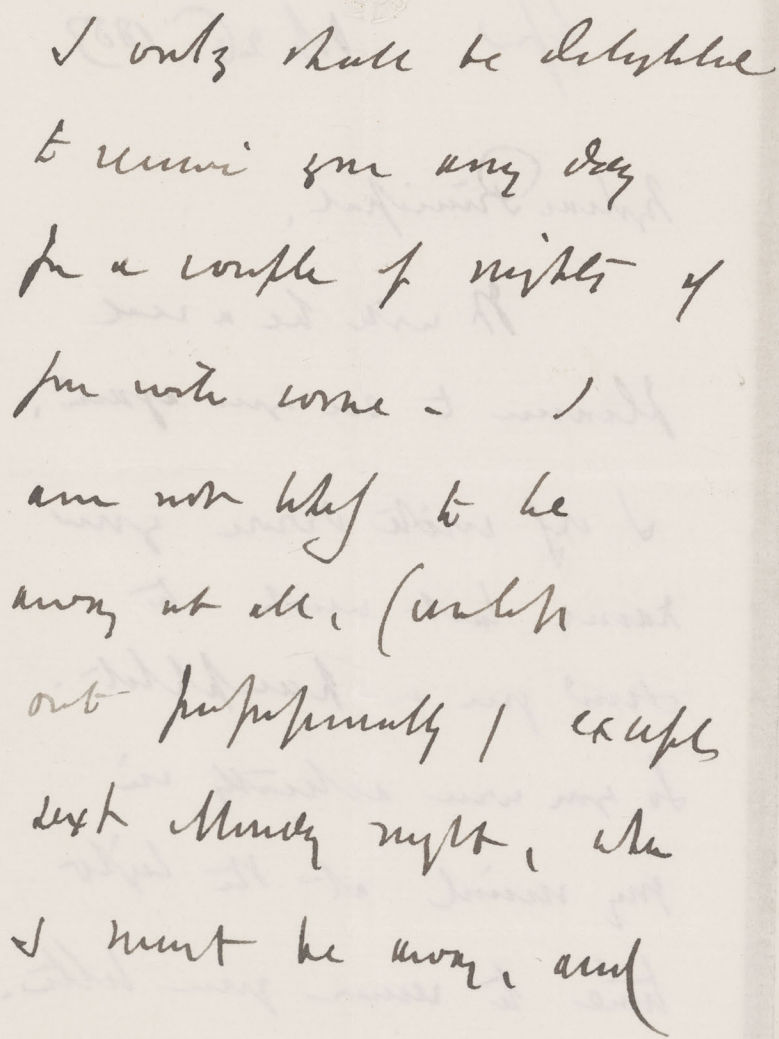 I only shall be delighted
to receive you any day
for a couple of nights if
you will come - I
am not likely to be
away at all, (unless
out professionally) except
next Monday night, when
I must be away, and